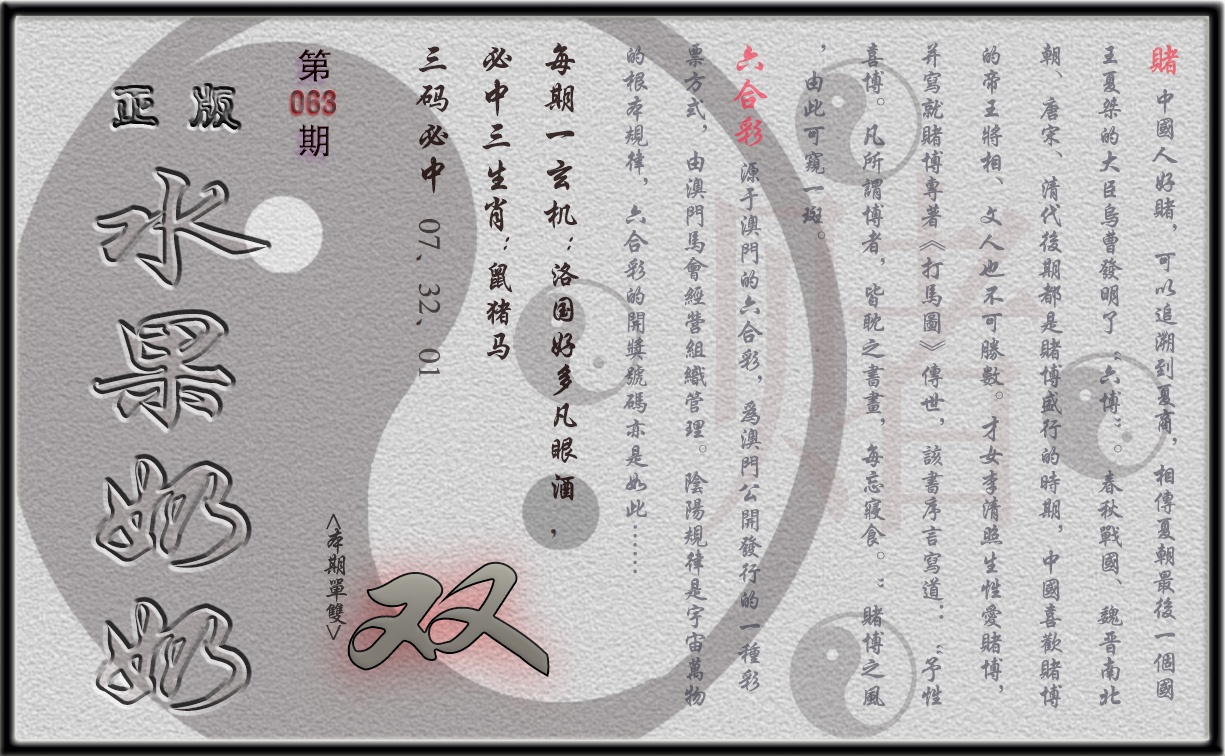 賭 中國人好賭，可以追溯到夏商，相傳夏朝最後一個國
王夏桀的大臣烏曹發明了“六博”。春秋戰國、魏晋南北
朝、唐宋、清代後期都是賭博盛行的時期，中國喜歡賭博
的帝王將相、文人也不可勝數。才女李清照生性愛賭博，
并寫就賭博專著《打馬圖》傳世，該書序言寫道：“予性
喜博。凡所謂博者，皆耽之書晝，每忘寢食。”賭博之風
，由此可窺一斑。
六合彩 源于澳門的六合彩，爲澳門公開發行的一種彩
票方式，由澳門馬會經營組織管理。陰陽規律是宇宙萬物
的根本規律，六合彩的開獎號碼亦是如此……
每期一玄机：洛国好多凡眼酒，
必中三生肖：鼠猪马
三码必中 07、32、01
<本期單雙>
双
第
063
期
正版
水果奶奶
赌